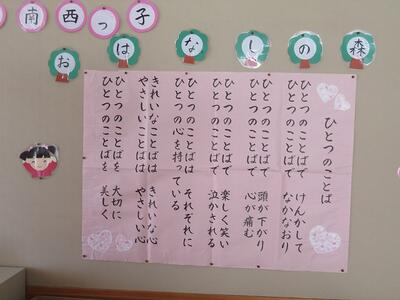 南西っ子
おはなしの森
ひとつのことば
ひとつのことばで けんかして
ひとつのことばで なかなおり
ひとつのことばで 頭が下がり
ひとつのことばで 心が痛む
ひとつのことばで 楽しく笑い
ひとつのことばで 泣かされる
ひとつのことばは それぞれに
ひとつの心を持っている
きれいなことばは きれいな心
やさしいことばは やさしい心
ひとつのことばを 大切に
ひとつのことばを 美しく